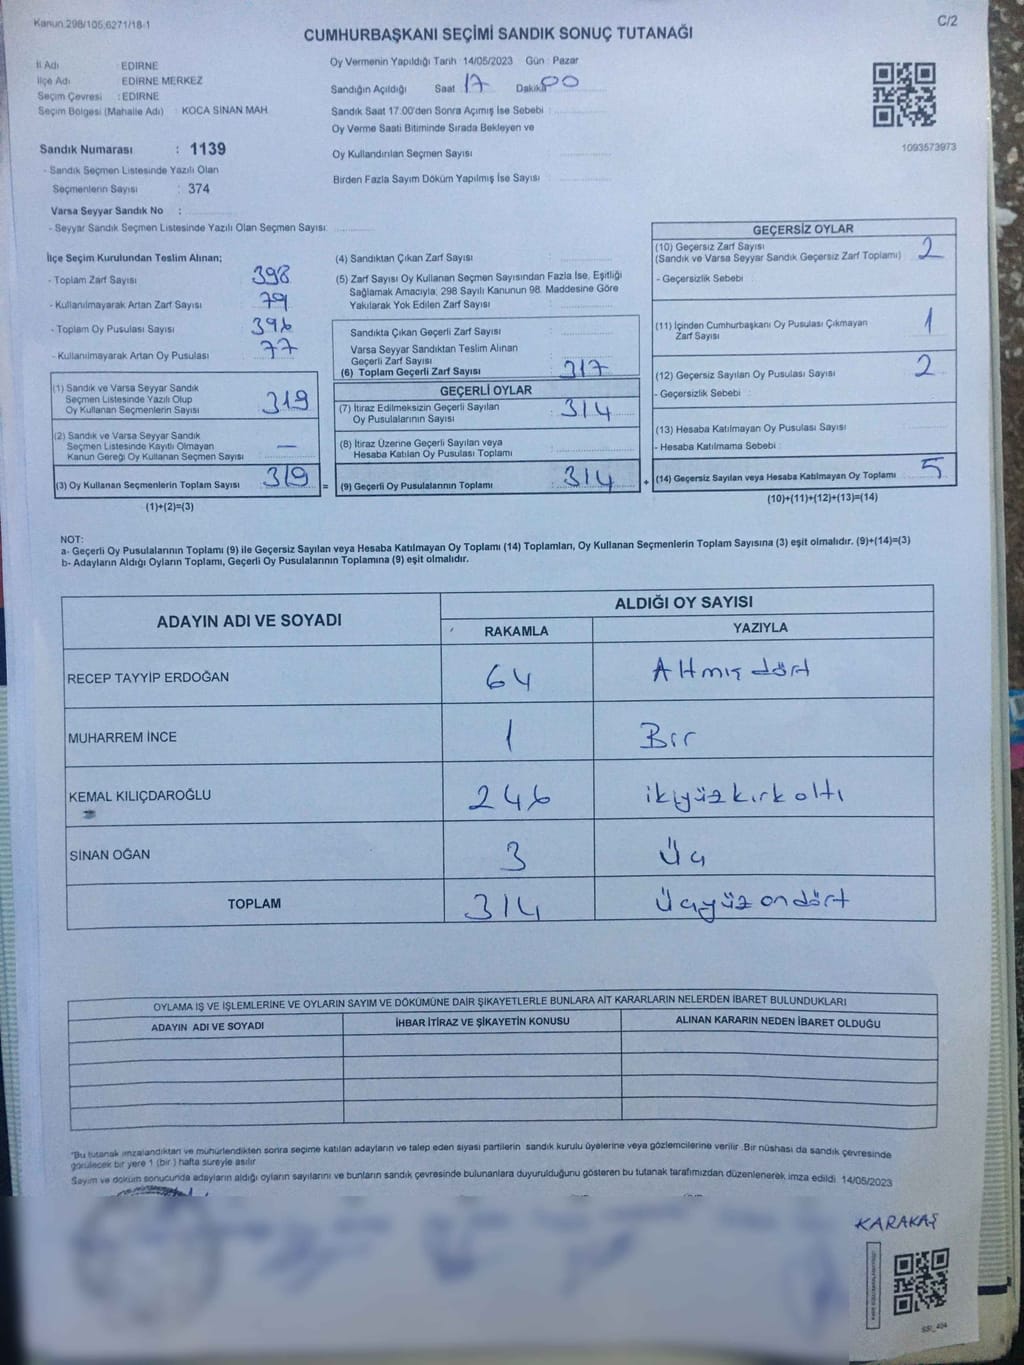 Kanun 298/105,6271/18-1
C/2
CUMHURBAŞKANI SEÇİMİ SANDIK SONUÇ TUTANAĞI
İl Adı : EDİRNE
İlçe Adı : EDİRNE MERKEZ
Seçim Çevresi : EDİRNE
Seçim Bölgesi (Mahalle Adı) : KOCA SİNAN MAH.
Sandık Numarası : 1139
- Sandık Seçmen Listesinde Yazılı Olan
Seçmenlerin Sayısı : 374
Varsa Seyyar Sandık No :
- Seyyar Sandık Seçmen Listesinde Yazılı Olan Seçmen Sayısı:
Oy Vermenin Yapıldığı Tarih 14/05/2023 Gün : Pazar
Sandığın Açıldığı Saat 17 Dakika 00
Sandık Saat 17:00'den Sonra Açımış İse Sebebi :
Oy Verme Saati Bitiminde Sırada Bekleyen ve
Oy Kullandırılan Seçmen Sayısı
Birden Fazla Sayım Döküm Yapılmış İse Sayısı :
1093573973
İlçe Seçim Kurulundan Teslim Alınan;
- Toplam Zarf Sayısı 398
- Kullanılmayarak Artan Zarf Sayısı 79
- Toplam Oy Pusulası Sayısı 396
- Kullanılmayarak Artan Oy Pusulası 77
(1) Sandık ve Varsa Seyyar Sandık
Seçmen Listesinde Yazılı Olup
Oy Kullanan Seçmenlerin Sayısı 319
(2) Sandık ve Varsa Seyyar Sandık
Seçmen Listesinde Kayıtlı Olmayan
Kanun Gereği Oy Kullanan Seçmen Sayısı —
(3) Oy Kullanan Seçmenlerin Toplam Sayısı 319 =
(1)+(2)=(3)
(4) Sandıktan Çıkan Zarf Sayısı
(5) Zarf Sayısı Oy Kullanan Seçmen Sayısından Fazla İse, Eşitliği
Sağlamak Amacıyla; 298 Sayılı Kanunun 98. Maddesine Göre
Yakılarak Yok Edilen Zarf Sayısı
Sandıkta Çıkan Geçerli Zarf Sayısı
Varsa Seyyar Sandıktan Teslim Alınan
Geçerli Zarf Sayısı
(6) Toplam Geçerli Zarf Sayısı 317
GEÇERLİ OYLAR
(7) İtiraz Edilmeksizin Geçerli Sayılan
Oy Pusulalarının Sayısı 314
(8) İtiraz Üzerine Geçerli Sayılan veya
Hesaba Katılan Oy Pusulası Toplamı
(9) Geçerli Oy Pusulalarının Toplamı 314 +
GEÇERSİZ OYLAR
(10) Geçersiz Zarf Sayısı
(Sandık ve Varsa Seyyar Sandık Geçersiz Zarf Toplamı) 2
- Geçersizlik Sebebi
(11) İçinden Cumhurbaşkanı Oy Pusulası Çıkmayan
Zarf Sayısı 1
(12) Geçersiz Sayılan Oy Pusulası Sayısı 2
- Geçersizlik Sebebi
(13) Hesaba Katılmayan Oy Pusulası Sayısı
- Hesaba Katılmama Sebebi :
(14) Geçersiz Sayılan veya Hesaba Katılmayan Oy Toplamı 5
(10)+(11)+(12)+(13)=(14)
NOT:
a- Geçerli Oy Pusulalarının Toplamı (9) ile Geçersiz Sayılan veya Hesaba Katılmayan Oy Toplamı (14) Toplamları, Oy Kullanan Seçmenlerin Toplam Sayısına (3) eşit olmalıdır. (9)+(14)=(3)
b- Adayların Aldığı Oyların Toplamı, Geçerli Oy Pusulalarının Toplamına (9) eşit olmalıdır.
ADAYIN ADI VE SOYADI
ALDIĞI OY SAYISI
RAKAMLA YAZIYLA
RECEP TAYYİP ERDOĞAN 64 Altmış dört
MUHARREM İNCE 1 Bir
KEMAL KILIÇDAROĞLU 246 ikiyüz kırk altı
SİNAN OĞAN 3 Üç
TOPLAM 314 Üçyüz ondört
OYLAMA İŞ VE İŞLEMLERİNE VE OYLARIN SAYIM VE DÖKÜMÜNE DAİR ŞİKAYETLERLE BUNLARA AİT KARARLARIN NELERDEN İBARET BULUNDUKLARI
ADAYIN ADI VE SOYADI İHBAR İTİRAZ VE ŞİKAYETİN KONUSU ALINAN KARARIN NEDEN İBARET OLDUĞU
"Bu tutanak imzalandıktan ve mühürlendikten sonra seçime katılan adayların ve talep eden siyasi partilerin sandık kurulu üyelerine veya gözlemcilerine verilir. Bir nüshası da sandık çevresinde
görülecek bir yere 1 (bir ) hafta süreyle asılır
Sayım ve döküm sonucunda adayların aldığı oyların sayılarını ve bunların sandık çevresinde bulunanlara duyurulduğunu gösteren bu tutanak tarafımızdan düzenlenerek imza edildi. 14/05/2023
KARAKAŞ